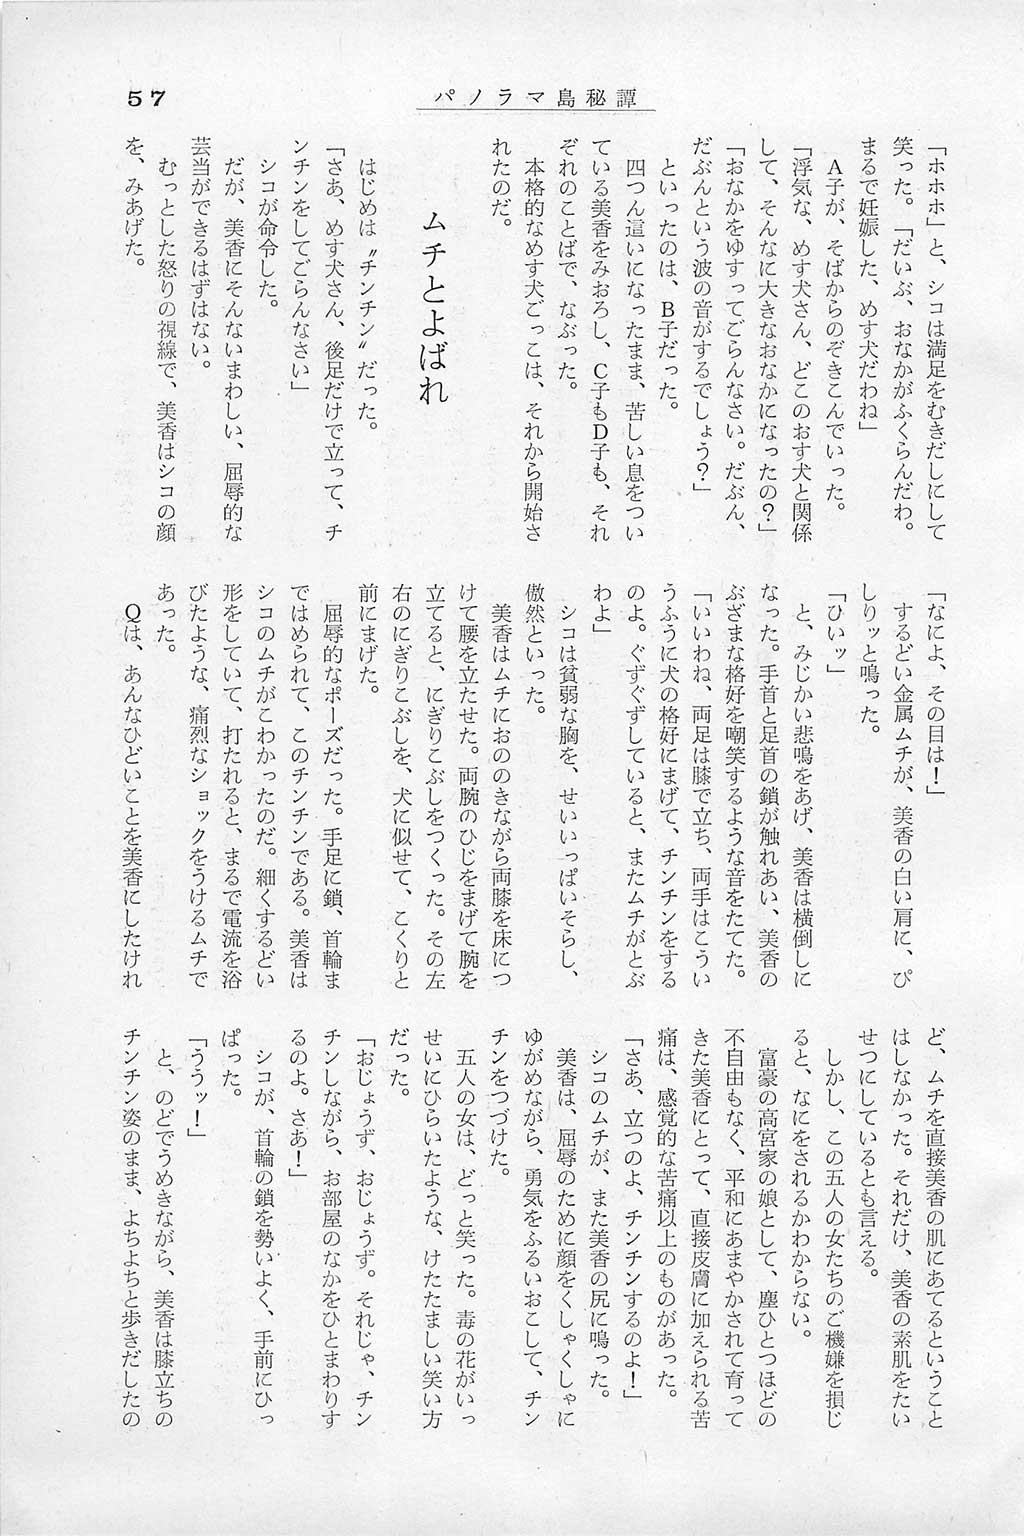 57
パノラマ島秘譚
「ホホホ」と、シコは満足をむきだしにして
笑った。「だいぶ、おなかがふくらんだわ。
まるで妊娠した、めす犬だわね」
A子が、そばからのぞきこんでいった。
「浮気な、めす犬さん、どこのおす犬と関係
して、そんなに大きなおなかになったの？」
「おなかをゆすってごらんなさい。だぶん、
だぶんという波の音がするでしょう？」
といったのは、B子だった。
四つん這いになったまま、苦しい息をつい
ている美香をみおろし、C子もD子も、それ
ぞれのことばで、なぶった。
本格的なめす犬ごっこは、それから開始さ
れたのだ。
ムチとよばれ
はじめは〝チンチン〟だった。
「さあ、めす犬さん、後足だけで立って、チ
ンチンをしてごらんなさい」
シコが命令した。
だが、美香にそんないまわしい、屈辱的な
芸当ができるはずはない。
むっとした怒りの視線で、美香はシコの顔
を、みあげた。
「なによ、その目は！」
するどい金属ムチが、美香の白い肩に、ぴ
しりッと鳴った。
「ひいッ」
と、みじかい悲鳴をあげ、美香は横倒しに
なった。手首と足首の鎖が触れあい、美香の
ぶざまな格好を嘲笑するような音をたてた。
「いいわね、両足は膝で立ち、両手はこうい
うふうに犬の格好にまげて、チンチンをする
のよ。ぐずぐずしていると、またムチがとぶ
わよ」
シコは貧弱な胸を、せいいっぱいそらし、
傲然といった。
美香はムチにおののきながら両膝を床につ
けて腰を立たせた。両腕のひじをまげて腕を
立てると、にぎりこぶしをつくった。その左
右のにぎりこぶしを、犬に似せて、こくりと
前にまげた。
屈辱的なポーズだった。手足に鎖、首輪ま
ではめられて、このチンチンである。美香は
シコのムチがこわかったのだ。細くするどい
形をしていて、打たれると、まるで電流を浴
びたような、痛烈なショックをうけるムチで
あった。
Qは、あんなひどいことを美香にしたけれ
ど、ムチを直接美香の肌にあてるということ
はしなかった。それだけ、美香の素肌をたい
せつにしているとも言える。
しかし、この五人の女たちのご機嫌を損じ
ると、なにをされるかわからない。
富豪の高宮家の娘として、塵ひとつほどの
不自由もなく、平和にあまやかされて育って
きた美香にとって、直接皮膚に加えられる苦
痛は、感覚的な苦痛以上のものがあった。
「さあ、立つのよ、チンチンするのよ！」
シコのムチが、また美香の尻に鳴った。
美香は、屈辱のために顔をくしゃくしゃに
ゆがめながら、勇気をふるいおこして、チン
チンをつづけた。
五人の女は、どっと笑った。毒の花がいっ
せいにひらいたような、けたたましい笑い方
だった。
「おじょうず、おじょうず。それじゃ、チン
チンしながら、お部屋のなかをひとまわりす
るのよ。さあ！」
シコが、首輪の鎖を勢いよく、手前にひっ
ぱった。
「ううッ！」
と、のどでうめきながら、美香は膝立ちの
チンチン姿のまま、よちよちと歩きだしたの